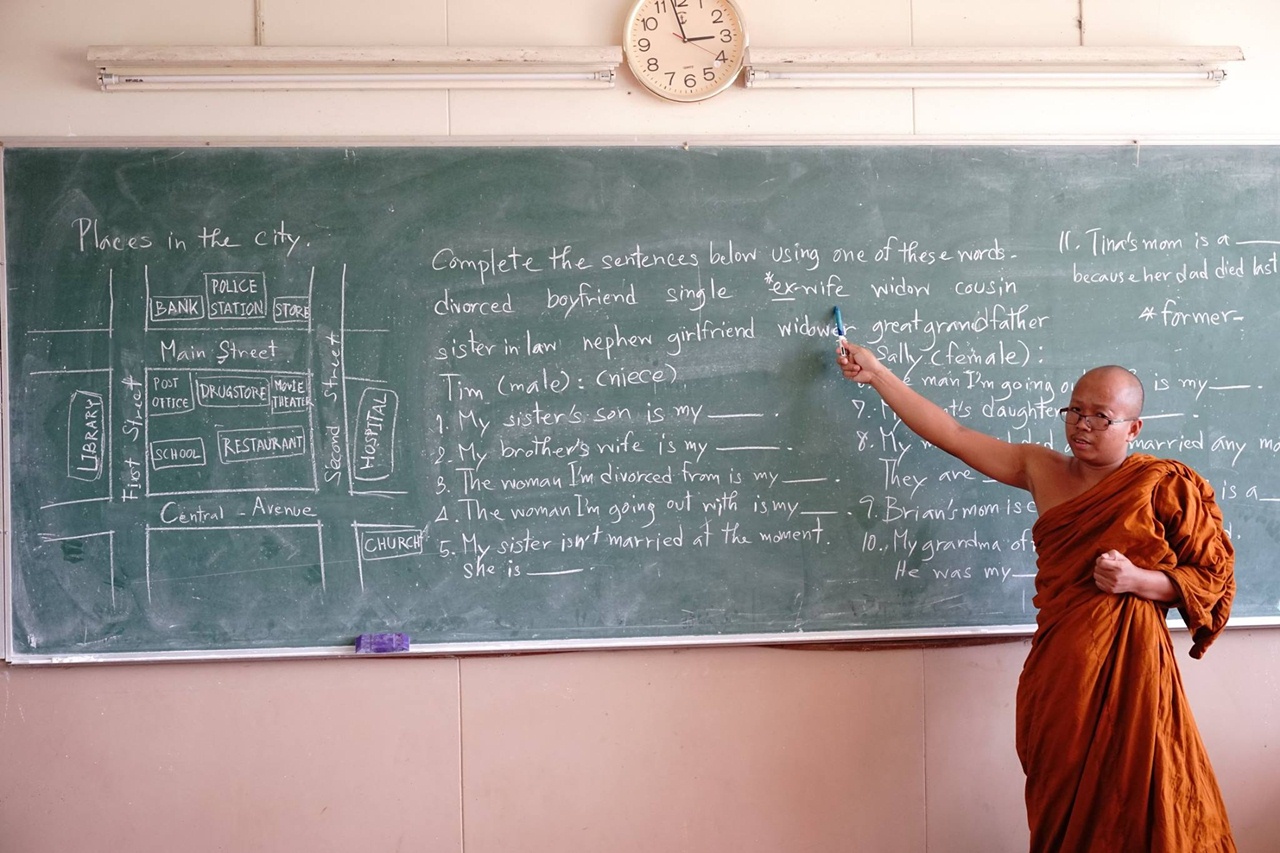 11 12 1 2 3 4 5 6 7 8 9 10
Places in the city.
BANK
POLICE
STATION
STORE
Main Street
POST
OFFICE
DRUGSTORE
MOVIE
THEATER
LIBRARY
First Street
SCHOOL
RESTAURANT
Second Street
HOSPITAL
Central Avenue
CHURCH
Complete the sentences below using one of these words.
divorced boyfriend single *ex-wife widow cousin
sister in law nephew girlfriend widower great grandfather
Tim (male): (niece)
1. My sister's son is my ____.
2. My brother's wife is my ____.
3. The woman I'm divorced from is my ____.
4. The woman I'm going out with is my ____.
5. My sister isn't married at the moment.
she is ____.
Sally (female):
man I'm going is my ____.
7. daughter ____.
8. My married any
They are
9. Brian's mom is is a
10. My grandma
He was my
11. Tina's mom is a ____
because her dad died last
*former-